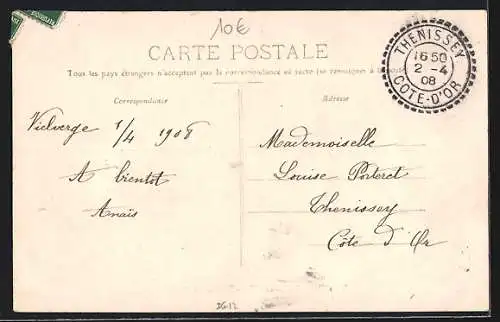 10€
CARTE POSTALE
Tous les pays étrangers n'acceptent pas la correspondance au recto (se renseigner à la poste)
THENISSEY
16 50
2 -4
08
COTE-D'OR
Correspondance
Adresse
Vielverge 1/4 1908
A bientôt
Anaïs
Mademoiselle
Louise
Thenissey
Côte d'Or